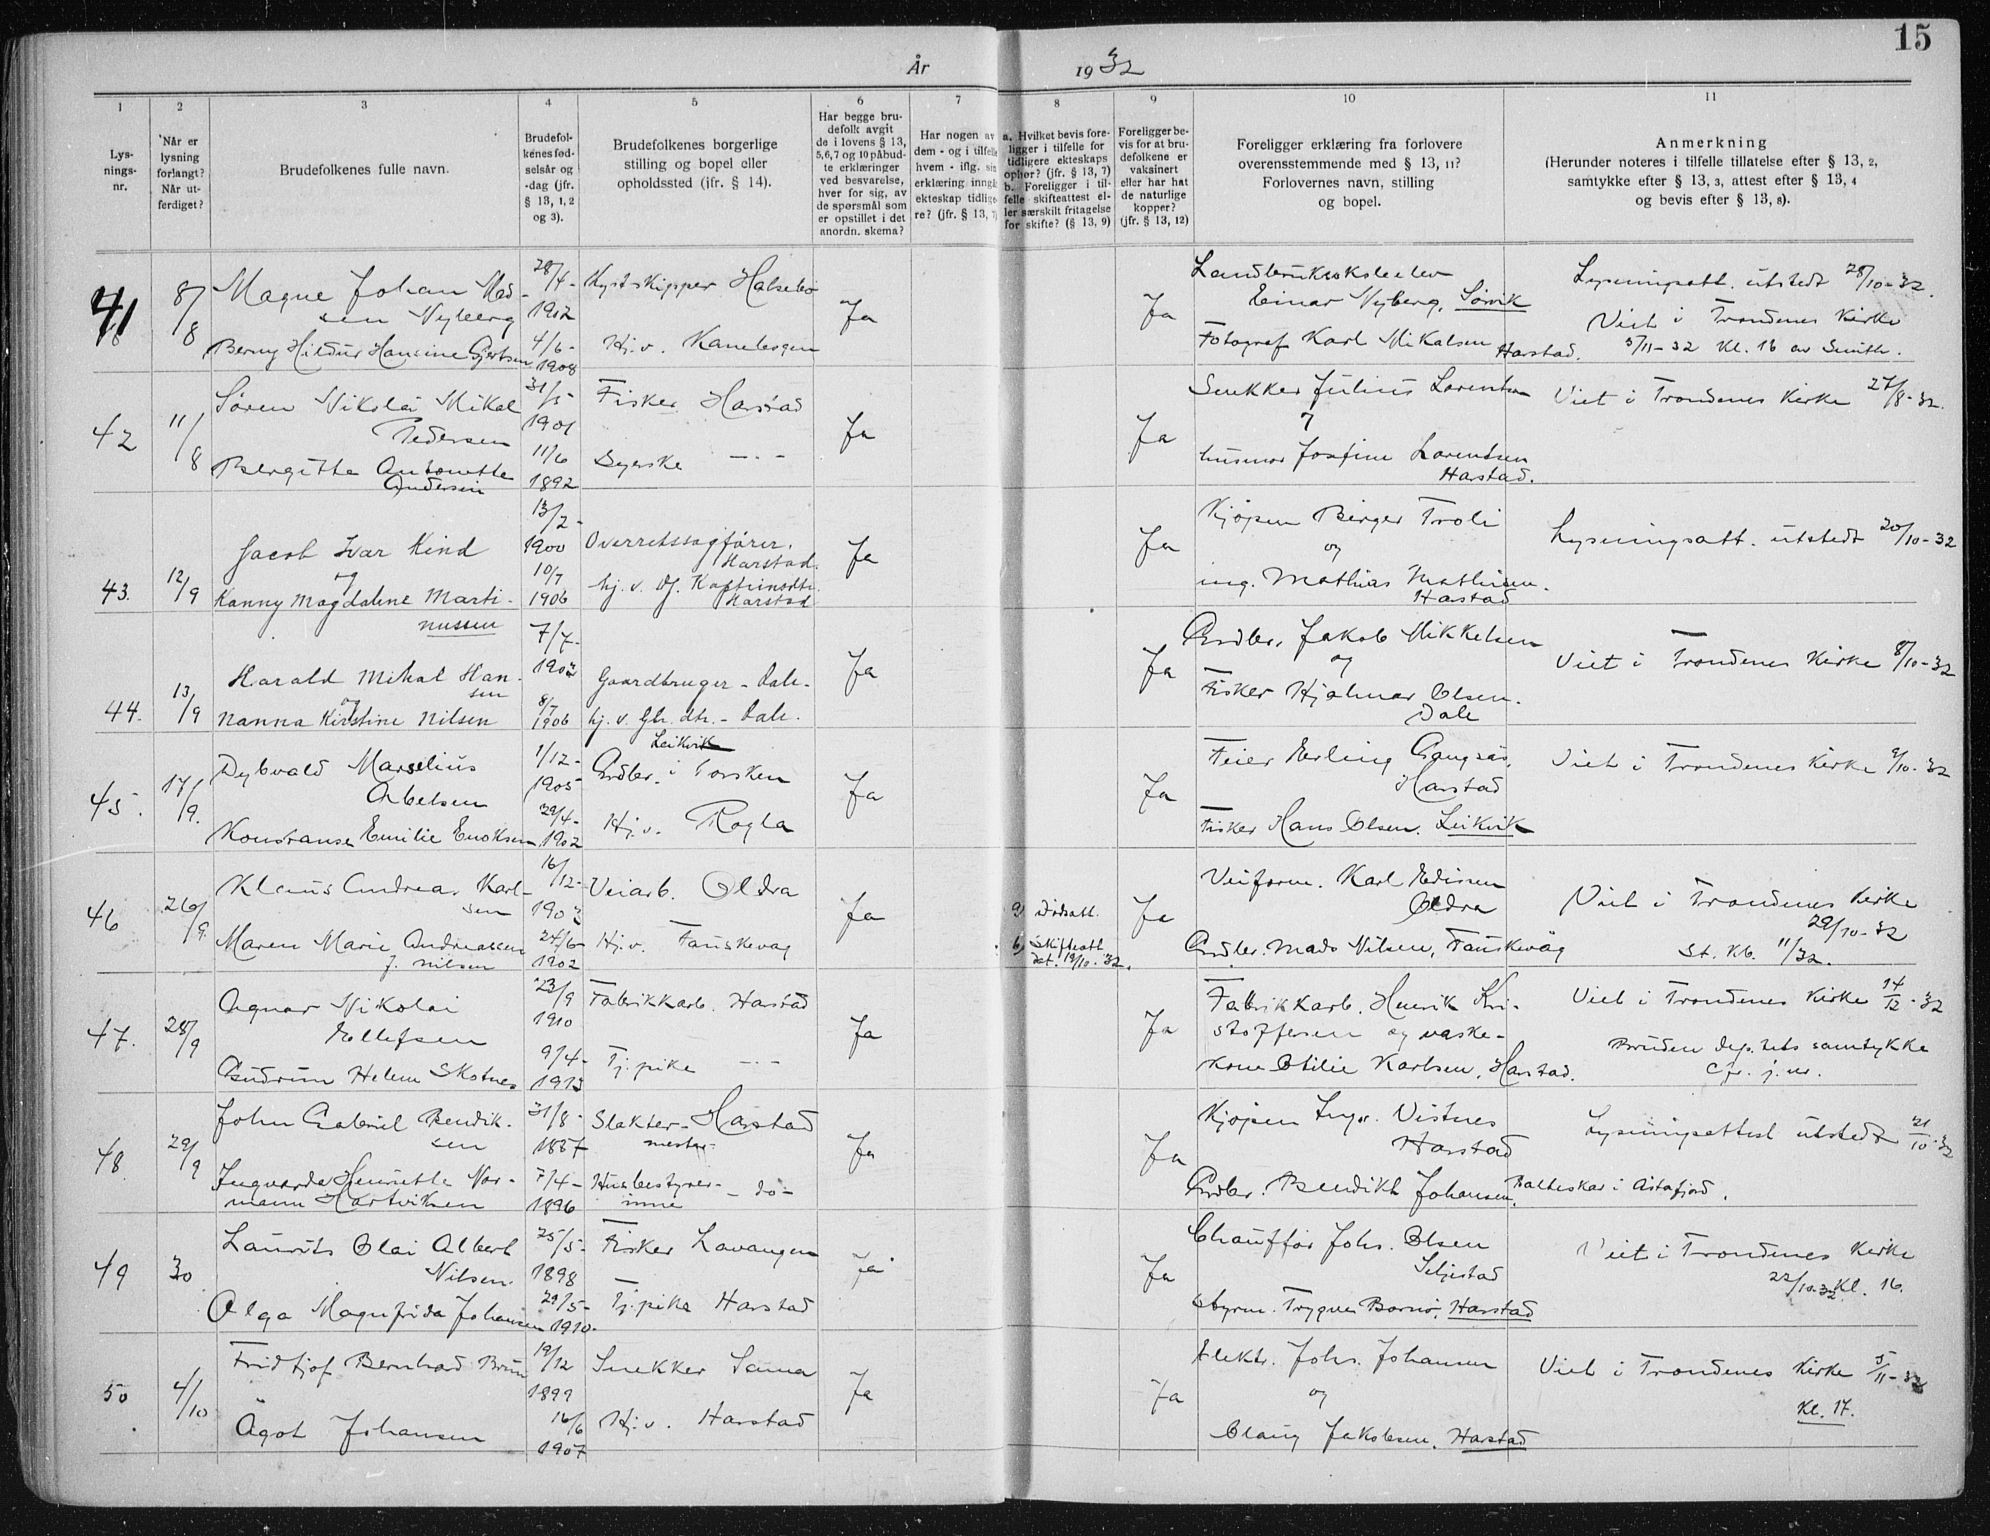 15
År 1932
1 2 3 4 5 6 7 8 9 10 11
Lys-
nings-
nr.
Når er
lysning
forlangt?
Når ut-
ferdiget?
Brudefolkenes fulle navn.
Brudefol-
kenes fød-
selsår og
-dag (jfr.
§ 13, 1, 2
og 3).
Brudefolkenes borgerlige
stilling og bopel eller
opholdssted (jfr. § 14).
Har begge bru-
defolk avgit
de i lovens § 13,
5, 6, 7 og 10 påbud-
te erklæringer
ved besvarelse,
hver for sig, av
de spørsmål som
er opstillet i det
anordn. skema?
Har nogen av
dem - og i tilfelle
hvem - iflg. sin
erklæring inngk
ekteskap tidlige-
re? (jfr. § 13, 7)
a. Hvilket bevis fore-
ligger i tilfelle for
tidligere ekteskaps
ophør? (jfr. § 13, 7)
b. Foreligger i til-
felle skifteattest el-
ler særskilt fritagelse
for skifte? (§ 13, 9)
Foreligger be-
vis for at bru-
defolkene er
vaksinert
eller har hat
de naturlige
kopper?
(jfr. § 13, 12)
Foreligger erklæring fra forlovere
overensstemmende med § 13, 11?
Forlovernes navn, stilling
og bopel.
Anmerkning
(Herunder noteres i tilfelle tillatelse efter § 13, 2,
samtykke efter § 13, 3, attest efter § 13, 4
og bevis efter § 13, 8).
41 8/8
Magne Johan Mad-
sen Nyberg
28/4-
1902
Kystskipper Halsebø
Berny Hildur Hansine Gjertsen
4/6-
1908
Hj.v. Kanebogen
Ja
Ja
Einar Nyberg, Sørvik
Fotograf Karl Mikalsen
Harstad.
Lysningsatt. utstedt 28/10-32.
Viet i Trondenes Kirke
5/11-32 Kl. 16 av Smith.
42 11/8
Søren Nikolai Mikal
Pedersen
31/5-
1901
Fisker Harstad
Bergitte Antonette
Andersen
11/6
1892
Syerske -"-
Ja
Ja
Snekker Julius Lorentsen
husmor Josfine Lorentsen
Harstad.
Viet i Trondenes Kirke 27/8-32.
43. 12/9
Jacob Ivar Kind
og
13/2-
1900
Overretssagfører.
Harstad.
Kanny Magdalene Marti-
nussen
10/7
1906
Harstad
Ja
Ja
Kjøpm Birger Troli
og
ing. Mathias Mathisen.
Harstad
Lysningsatt. utstedt 20/10-32
44. 13/9
Harald Mikal Han-
sen
og
7/7-
Gaardbruger - Dale-
Nanna Kirstine Nilsen
8/7
1906
hj.v. Gb. dtr. - Dale.
Ja
Ja
Grdbr. Jakob Mikkelsen
og
Fisker Hjalmar Olsen.
Dale
Viet i Trondenes Kirke 8/10-32
45. 17/9.
Dybvald Marselius
Abelsen
1/12-
1905
Leikvik
Grdbr. i Torsken
Konstanse Emilie Enoksen
29/4-
1902
Hj.v. Rogla
Ja
Ja
Feier Erling Gangsås,
Harstad
Fisker Hans Olsen. Leikvik
Viet i Trondenes Kirke 9/10-32
46 26/9.
Klaus Andreas Karl-
sen
16/12-
Veiarb. Oldra
Maren Marie Andreassen
f. Nilsen
24/6-
1902
Hj.v. Fauskevåg
Ja
a) Dødsatt.
b) Skifteatt.
dat. 19/10-32.
Ja
Veiform. Karl Edissen
Oldra
Grdbr. Mads Nilsen, Fauskevåg
Viet i Trondenes Kirke
29/10-32
St. Kb. 11/32.
47. 28/9
Agnar Nikolai
Ellefsen
23/9
1910
Fabrikkarb. Harstad
Gudrun Helene Skotnes
9/4-
1913
Tj.pike -"-
Ja
Ja
Fabrikkarb. Henrik Kri-
stoffersen og vaske-
kone Otilie Karlsen, Harstad.
Viet i Trondenes Kirke 14/12-32
Bruden Dep.tets samtykke
Cfr. j.nr.
48 29/9
John Gabriel Bendik-
sen
31/8-
1887
Slakter- Harstad
mester-
Ingvarda Henriette Nor-
mann Hartviksen
7/4-
1896
Husbestyrer-
inne -do-
Ja
Ja
Kjøpm Ingv. Vistnes
Harstad
Grdbr. Bendikt Johansen, Balteskar i Astafjord.
Lysningsattest utstedt 21/10-32
49 30
Laurits Olai Albert
Nilsen.
25/5-
1898
Fisker Lavangen
Olga Magnfrida Johansen
29/5-
1910.
Tj.pike Harstad
Ja
Ja
Chauffør Johs. Olsen
Seljestad
Styrm. Trygve Bornø, Harstad
Viet i Trondenes Kirke
22/10-32 Kl. 16.
50 4/10
Fridtjof Bernhard Brun
19/12
1899
Snekker Sama
Ågot Johansen
16/6
1907
Hj.v. Harstad
Ja
Ja
Elektr. Johs. Johansen
og
Olaug Jakobsen, Harstad
Viet i Trondenes Kirke 5/11-32
Kl. 17.